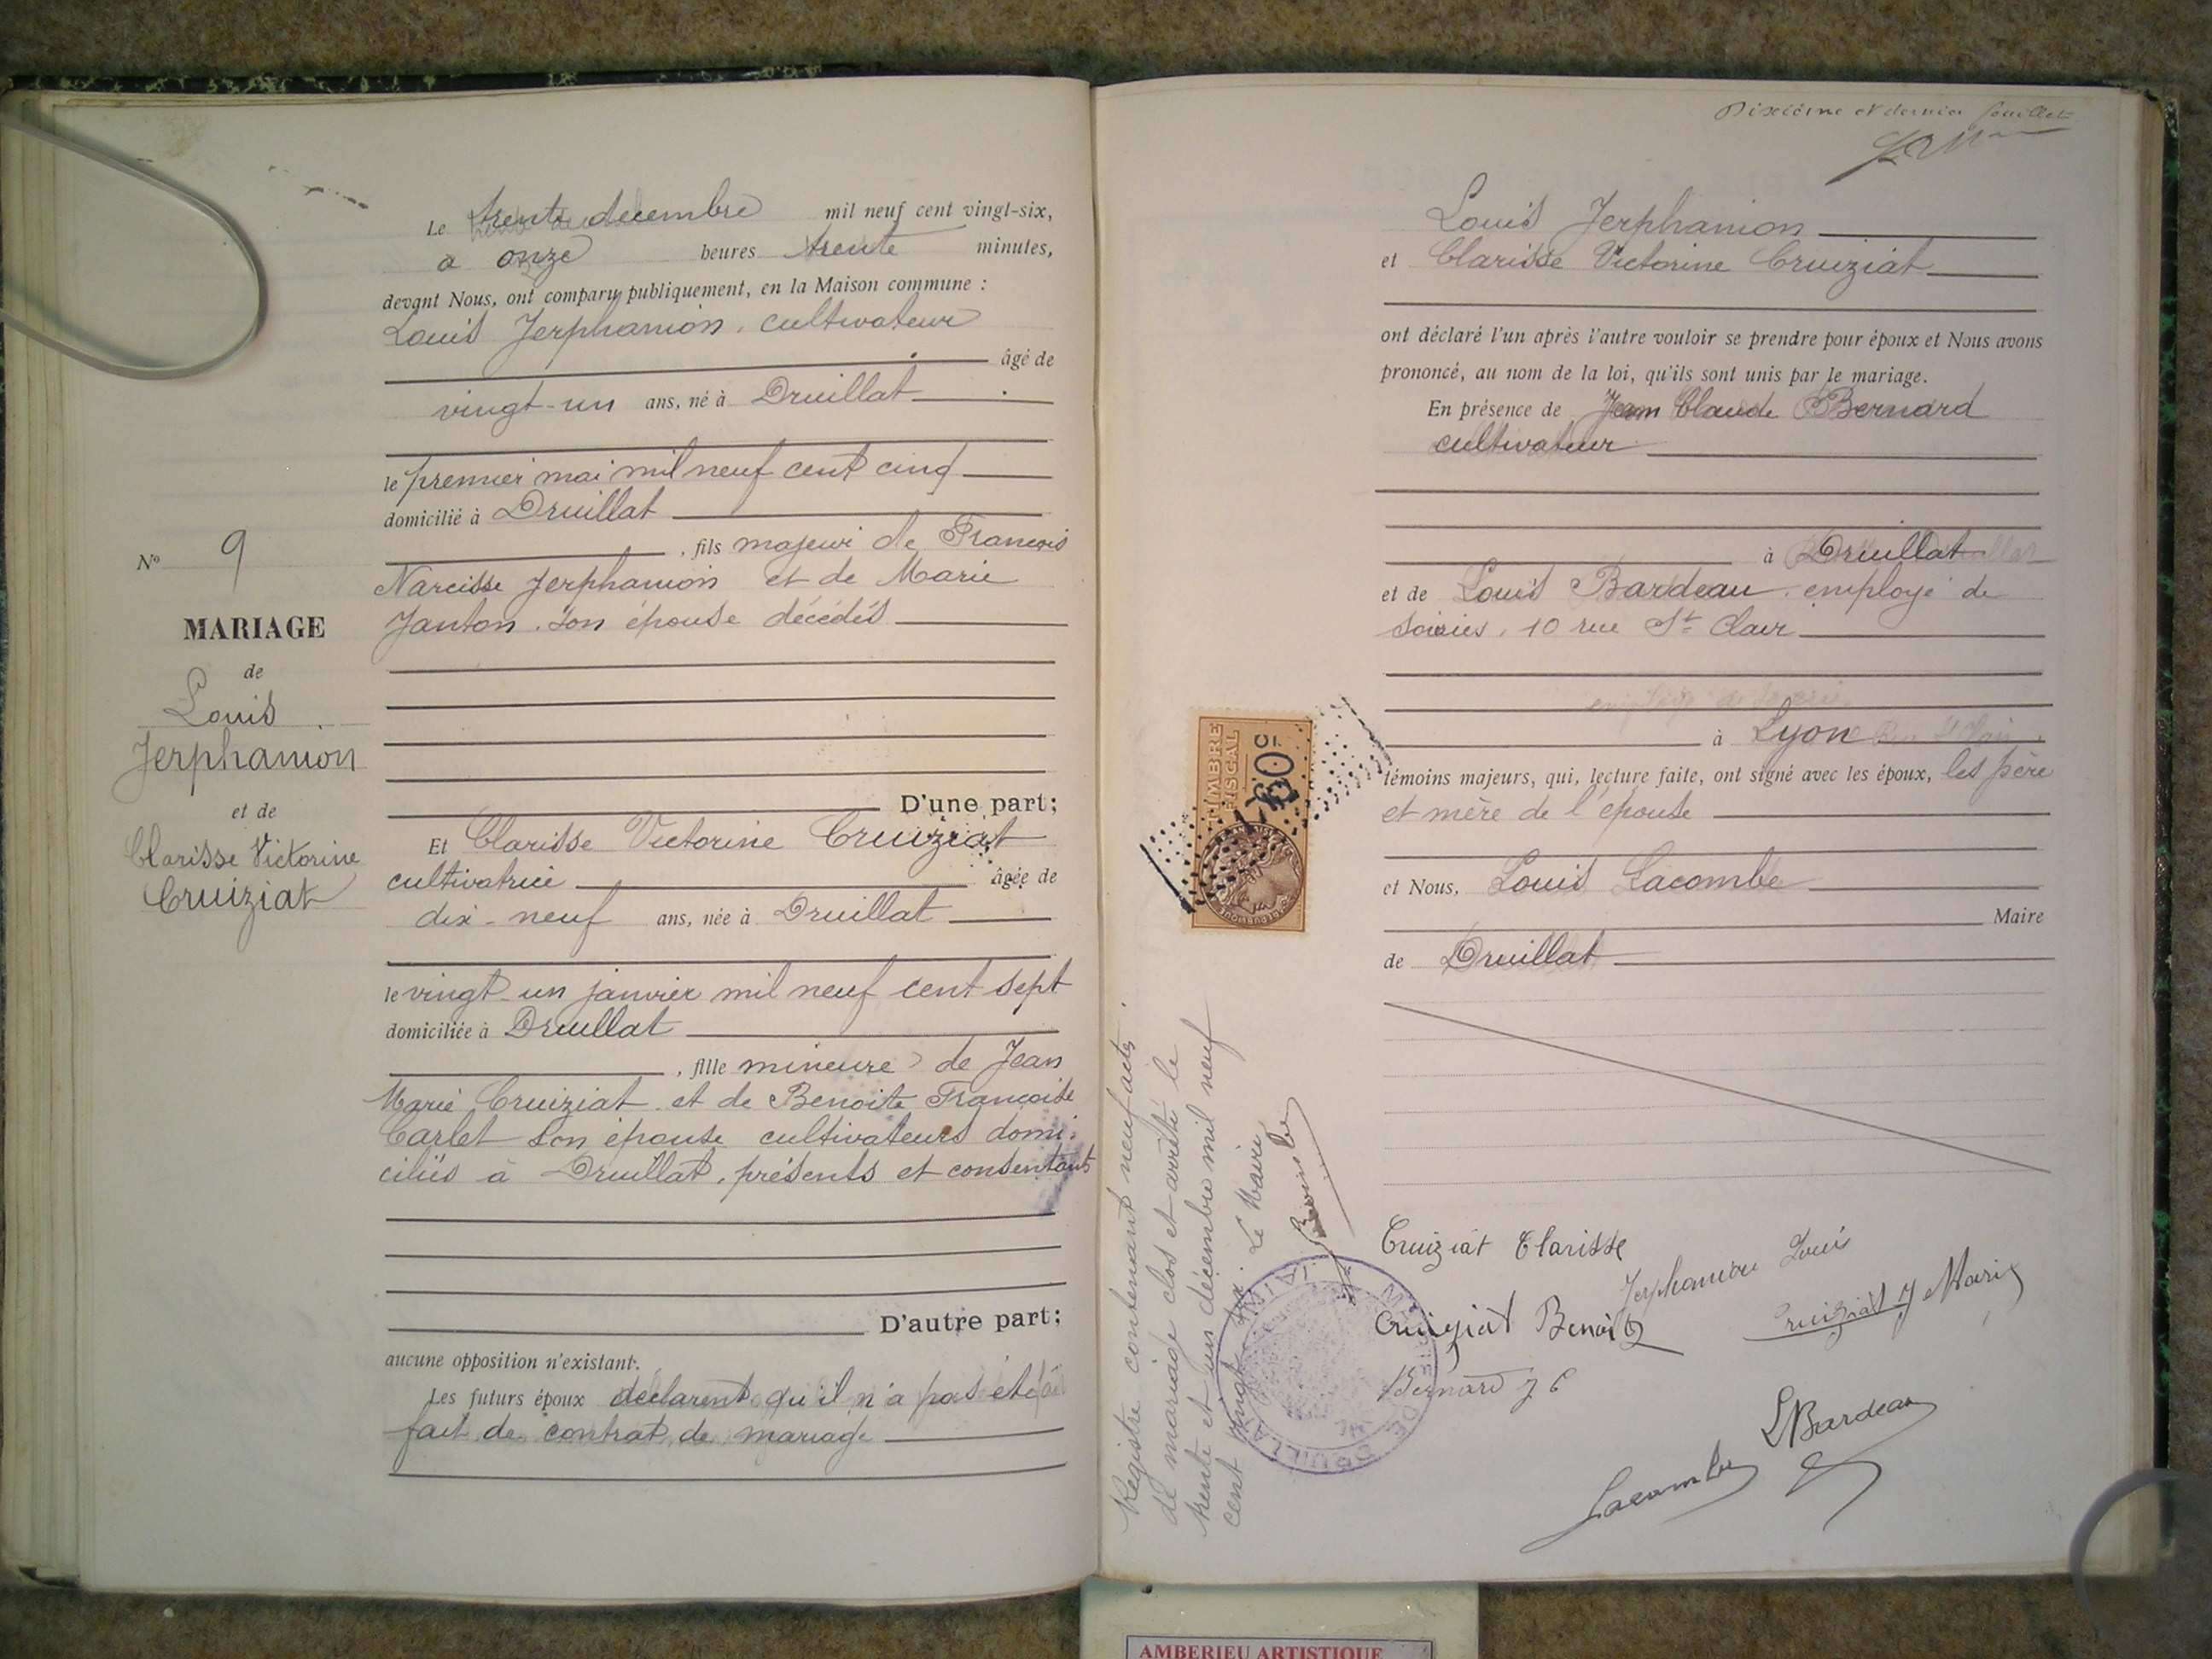 Nº 9
MARIAGE
de
Louis
Jerphanion
et de
Clarisse Victorine
Cruiziat
Le trente decembre mil neuf cent vingt-six,
à onze heures trente minutes,
devant Nous, ont comparu publiquement, en la Maison commune :
Louis Jerphanion, cultivateur
âgé de
vingt-un ans, né à Druillat
le premier mai mil neuf cent cinq
domicilié à Druillat
, fils majeur de François
Narcisse Jerphanion et de Marie
Janton son épouse décédés
D'une part;
Et Clarisse Victorine Cruiziat
cultivatrice âgée de
dix-neuf ans, née à Druillat
le vingt-un janvier mil neuf cent sept
domiciliée à Druillat
, fille mineure de Jean
Marie Cruiziat et de Benoite Françoise
Carlet son épouse cultivateurs domi-
ciliés à Druillat, présents et consentants
D'autre part;
aucune opposition n'existant.
Les futurs époux declarent qu'il n'a pas été
fait de contrat de mariage
Dixième et dernier feuillet
Louis Jerphanion
et Clarisse Victorine Cruiziat
ont déclaré l'un après l'autre vouloir se prendre pour époux et Nous avons
prononcé, au nom de la loi, qu'ils sont unis par le mariage.
En présence de Jean Claude Bernard
cultivateur
à Druillat
et de Louis Bardeau, employé de
soieries, 10 rue St Clair
à Lyon
témoins majeurs, qui, lecture faite, ont signé avec les époux, les père
et mère de l'épouse
et Nous, Louis Lacombe
Maire
de Druillat
TIMBRE
FISCAL
60c
Registre contenant neuf actes
de mariage clos et arrêté le
trente et un décembre mil neuf
cent vingt-six. Le Maire
Lacombe
MAIRIE DE DRUILLAT
Cruiziat Clarisse
Jerphanion Louis
Cruiziat Benoite
Cruiziat J Marie
Bernard J C
LBardeau
Lacombe
AMBERIEU ARTISTIQUE